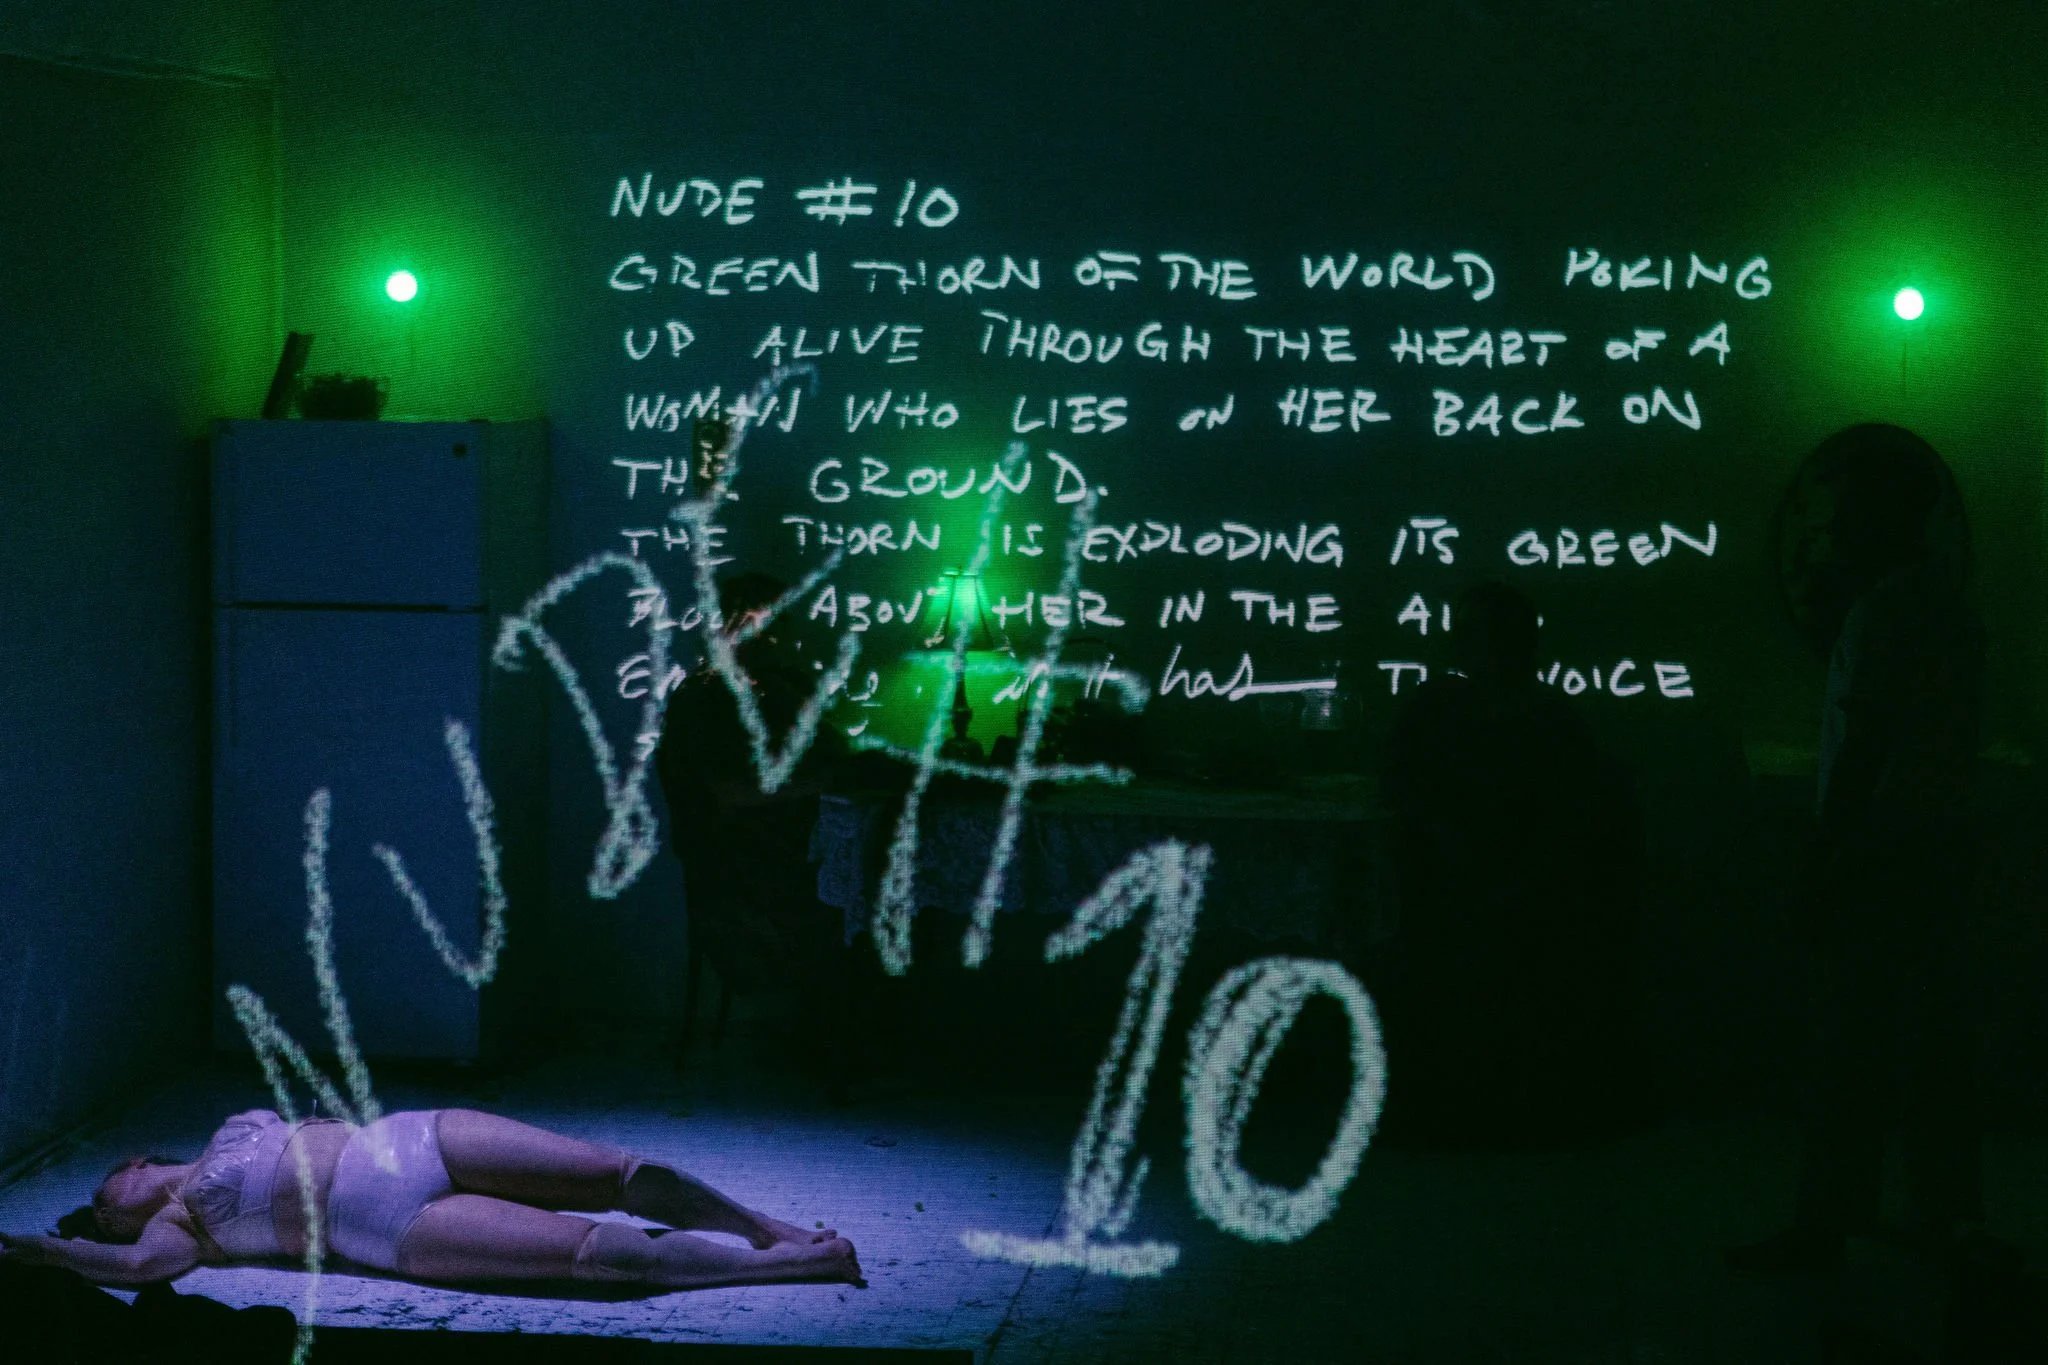 NUDE #10
GREEN THORN OF THE WORLD POKING
UP ALIVE THROUGH THE HEART OF A
WOMAN WHO LIES ON HER BACK ON
THE GROUND.
THE THORN IS EXPLODING ITS GREEN
ABOVE HER IN THE AIR.
it has THE VOICE
NUDE #10